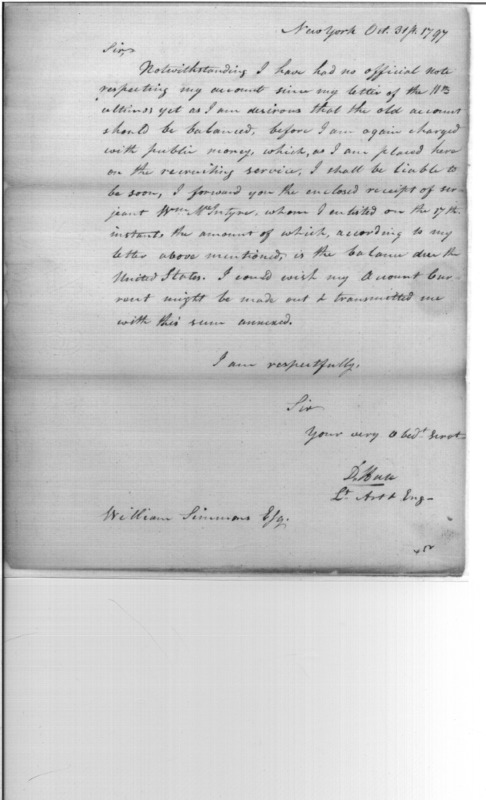 New York Oct. 31st. 1797
Sir,
Notwithstanding I have had no official note
respecting my account since my letter of the 11th
ultimo; yet as I am desirous that the old account
should be balanced, before I am again charged
with public money, which, as I am placed here
on the recruiting service, I shall be liable to
be soon, I forward you the enclosed receipt of ser-
jeant Wm. McIntyre, whom I enlisted on the 17th.
instant, the amount of which, according to my
letter above mentioned, is the balance due the
United States. I could wish my Account Cur-
rent might be made out & transmitted me
with this sum annexed.
I am respectfully,
Sir
Your very Obedt. Servt.
Lt. Art & Eng
William Simmons Esq.